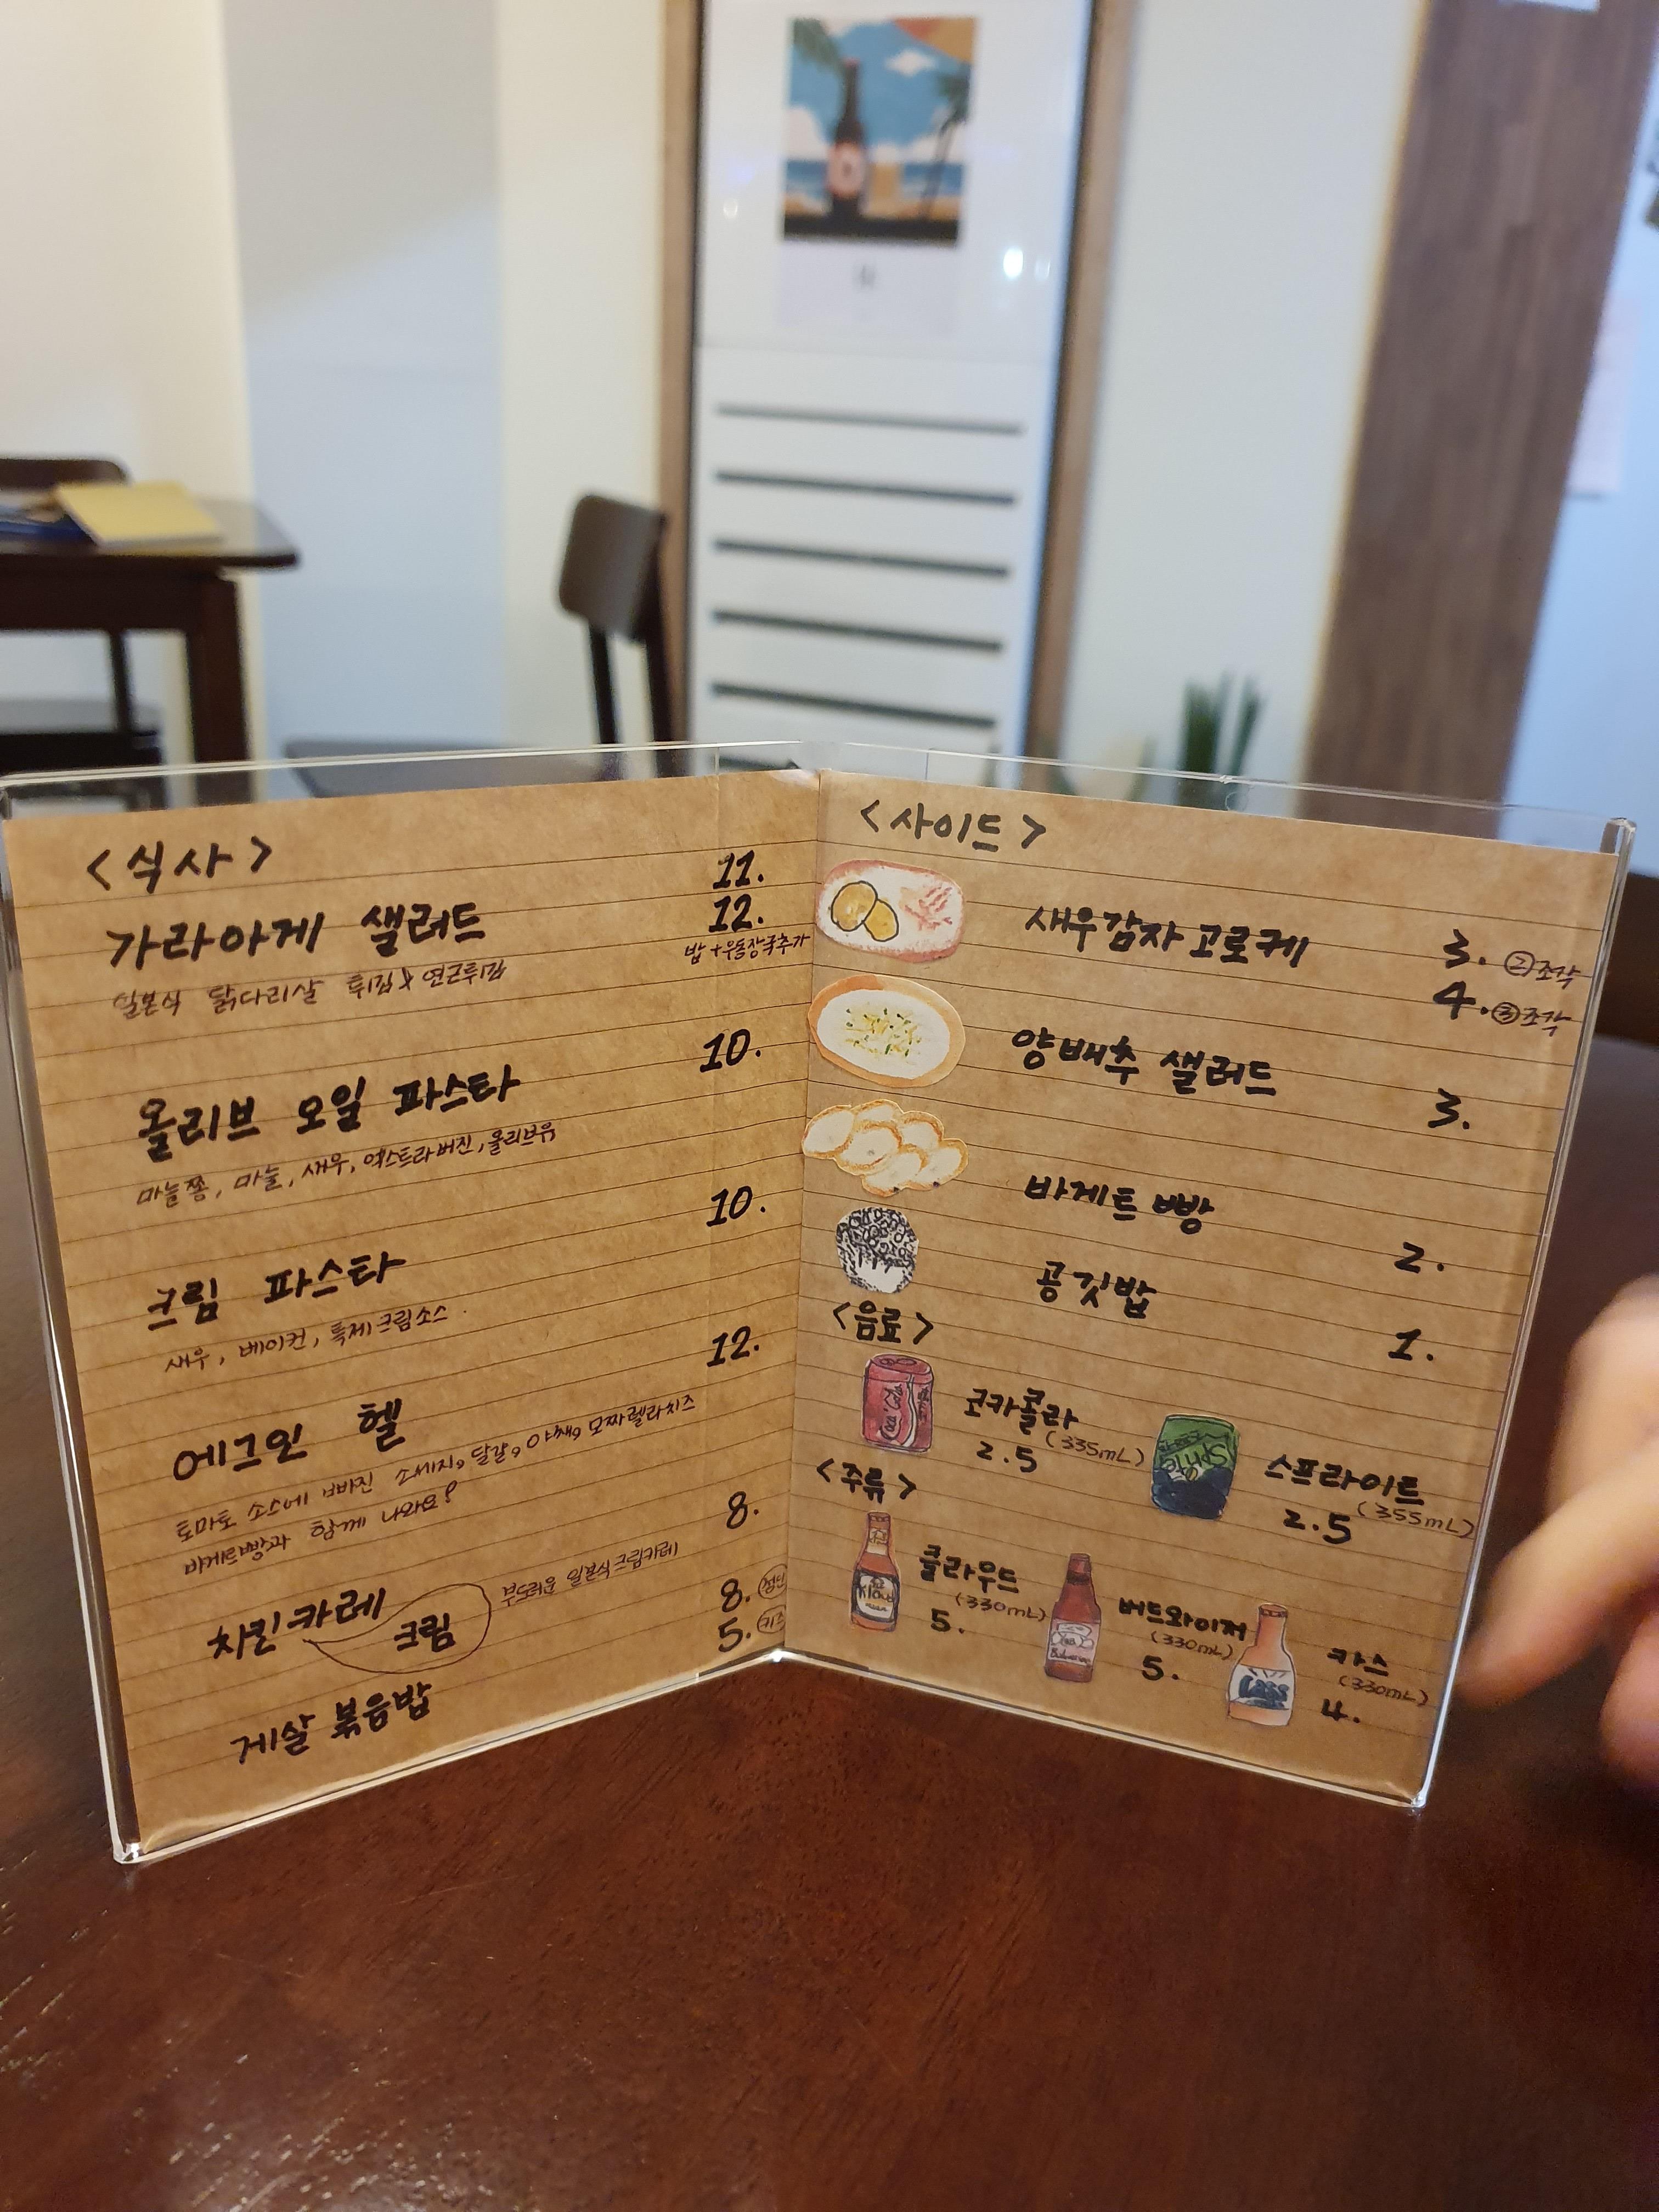 <식사>
가라아게 샐러드 11.
12.
밥+우동장국추가
일본식 닭다리살 튀김 & 연근튀김
올리브 오일 파스타 10.
마늘쫑, 마늘, 새우, 엑스트라버진, 올리브유
크림 파스타 10.
새우, 베이컨, 특제크림소스
에그인 헬 12.
토마토 소스에 빠진 소세지, 달걀, 야채, 모짜렐라치즈
바게트빵과 함께 나와요!
치킨카레 크림 8.
부드러운 일본식 크림카레
게살 볶음밥 8. 성인
5. 키즈
<사이드>
새우감자 고로케 3. ②조각
4. ③조각
양배추 샐러드 3.
바게트 빵 2.
공깃밥 1.
<음료>
코카콜라
(335mL)
2.5
스프라이트
(355mL)
2.5
<주류>
클라우드
(330mL)
5.
버드와이저
(330mL)
5.
카스
(330mL)
4.
Coca Cola
Sprite
Kloud
Cass